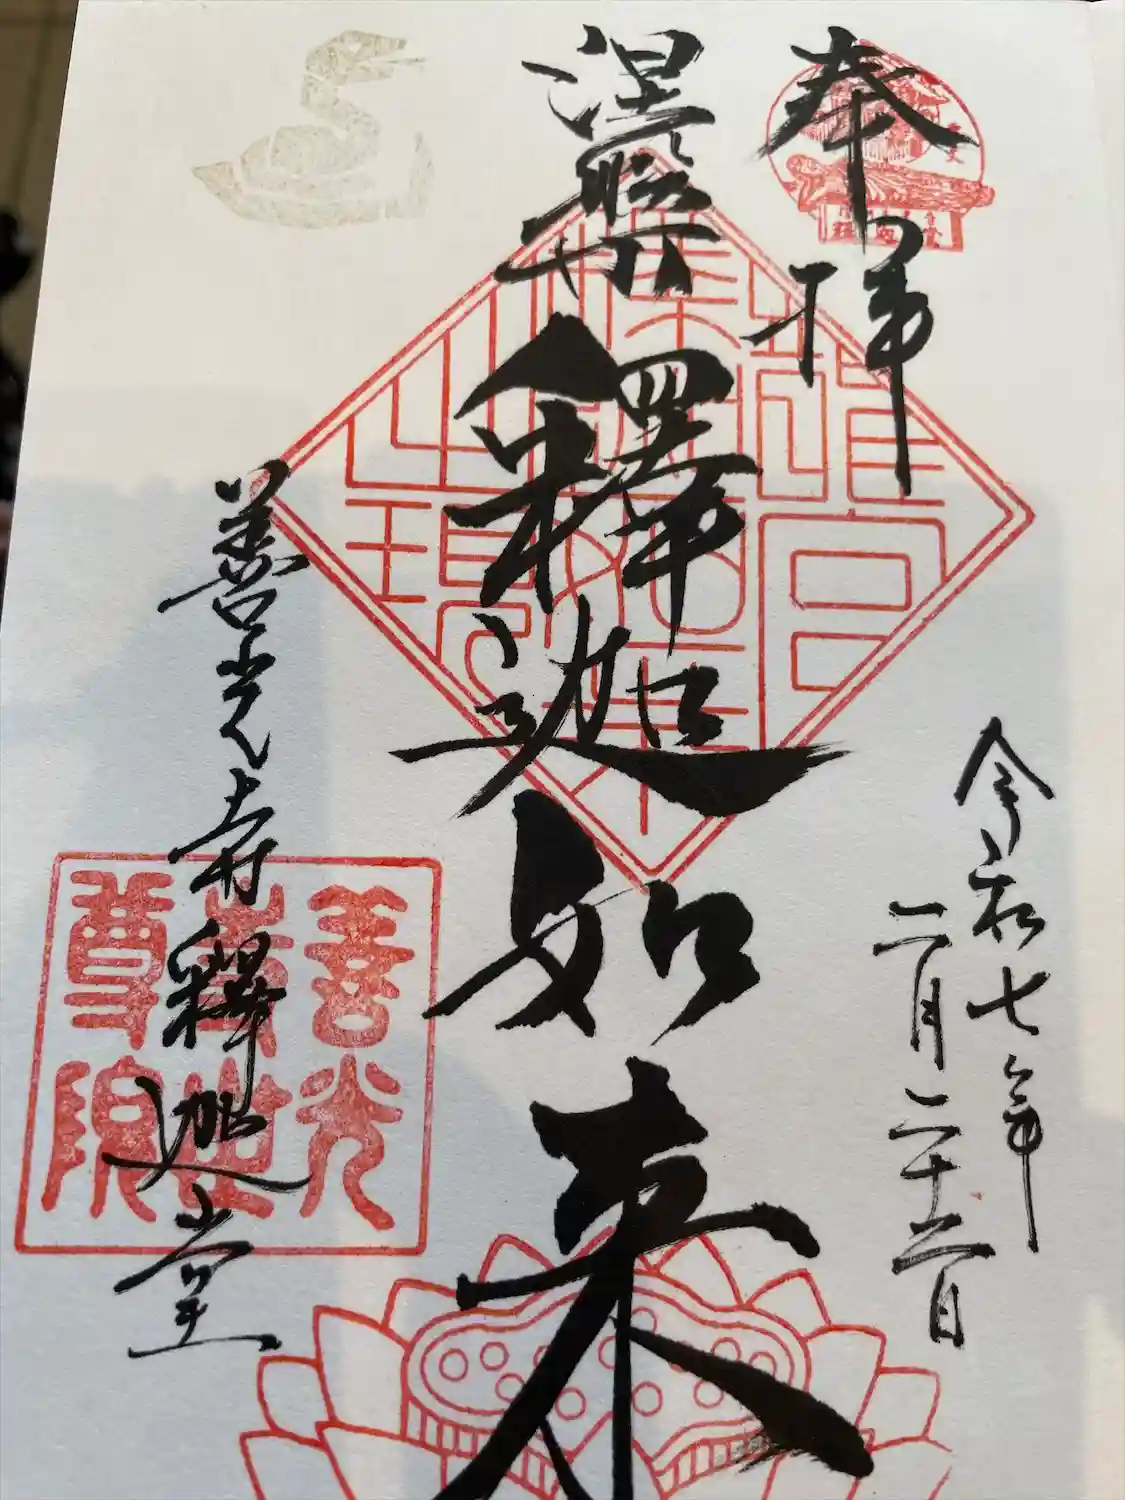 奉拝
令和七年
二月二十三日
涅槃釋迦如来
善光寺釋迦堂
善光
寺世
尊院